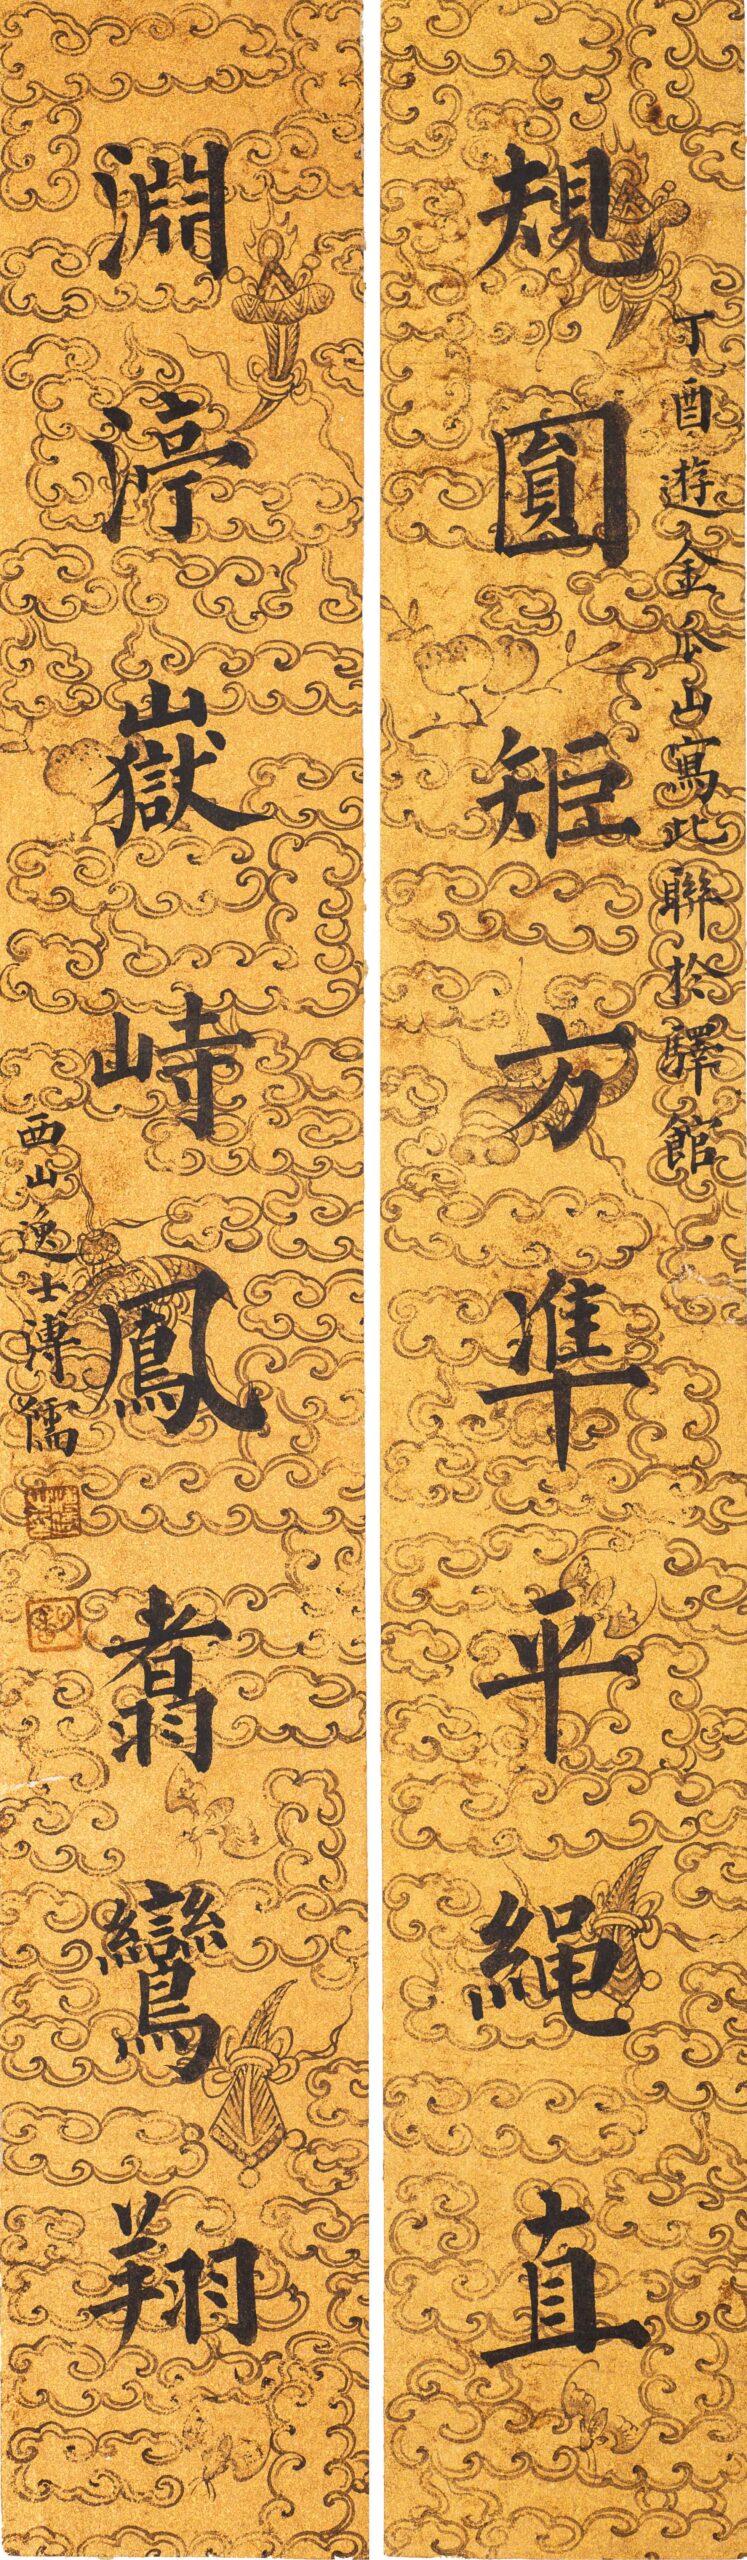 丁酉遊金瓜山寫此聯於驛館
規圎矩方準平繩直
淵渟嶽峙鳳翥鸞翔
西山逸士溥儒